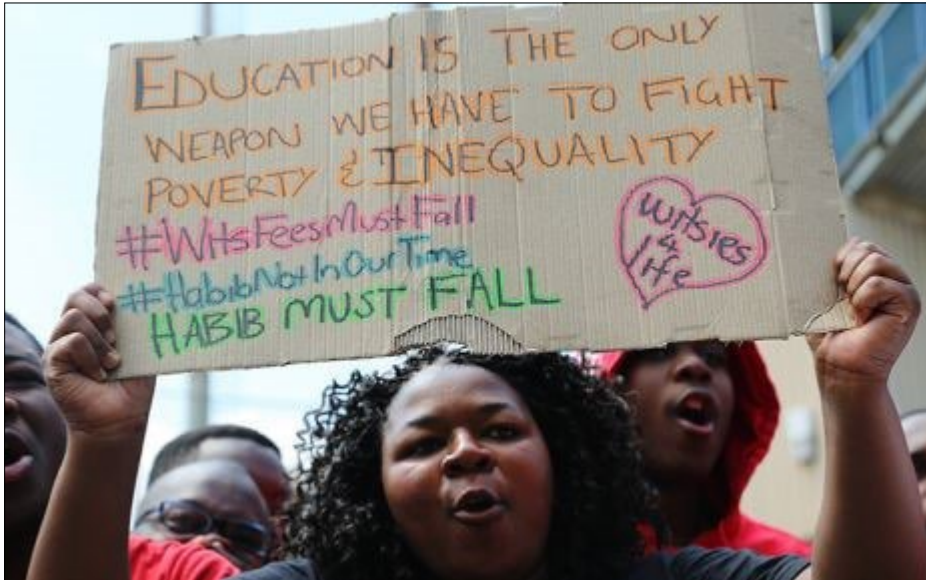 EDUCATION IS THE ONLY
WEAPON WE HAVE TO FIGHT
POVERTY & INEQUALITY
#WitsFeesMustFall
#HabibNotInOurTime
HABIB MUST FALL
Witsies
4
life